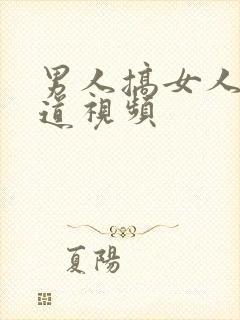 男人搞女人
道視頻
夏陽